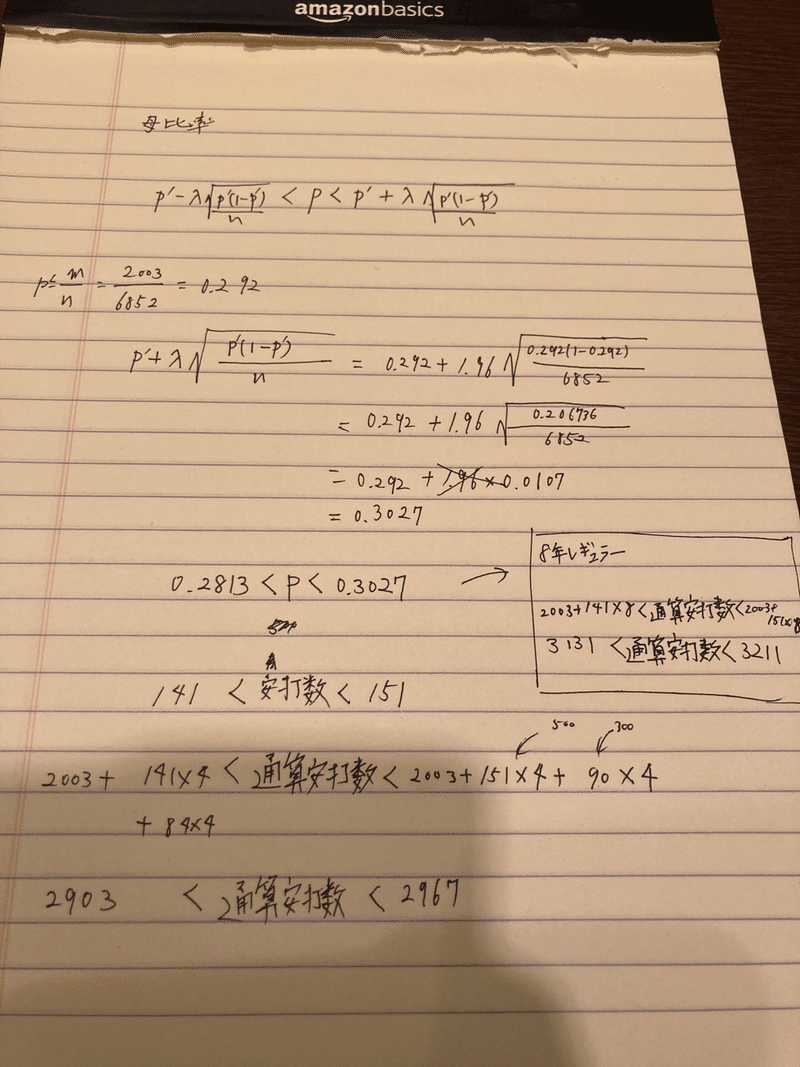 amazonbasics
母比率
p'-λ√(p'(1-p')/n) < p < p'+λ√(p'(1-p')/n)
p'=m/n=2003/6852=0.292
p'+λ√(p'(1-p')/n) = 0.292+1.96√(0.292(1-0.292)/6852)
= 0.292+1.96√(0.206736/6852)
= 0.292+1.96×0.0107
= 0.3027
0.2813<p<0.3027 →
8年レギュラー
2003+141×8<通算安打数<2003+151×8
3131<通算安打数<3211
141<安打数<151
500 300
2003+141×4<通算安打数<2003+151×4+90×4
+84×4
2903<通算安打数<2967